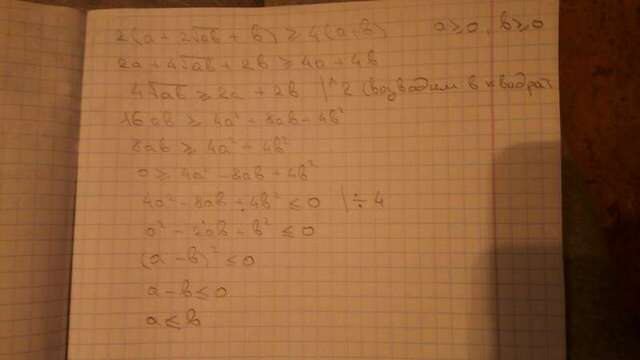 2(a + 2√ab + b) ≥ 4(a+b) a ≥ 0, b ≥ 0
2a + 4√ab + 2b ≥ 4a + 4b
4√ab ≥ 2a + 2b |^2 (возводим в квадрат
16ab ≥ 4a² + 8ab + 4b²
8ab ≥ 4a² + 4b²
0 ≥ 4a² - 8ab + 4b²
4a² - 8ab + 4b² ≤ 0 | ÷ 4
a² - 2ab + b² ≤ 0
(a - b)² ≤ 0
a - b ≤ 0
a ≤ b